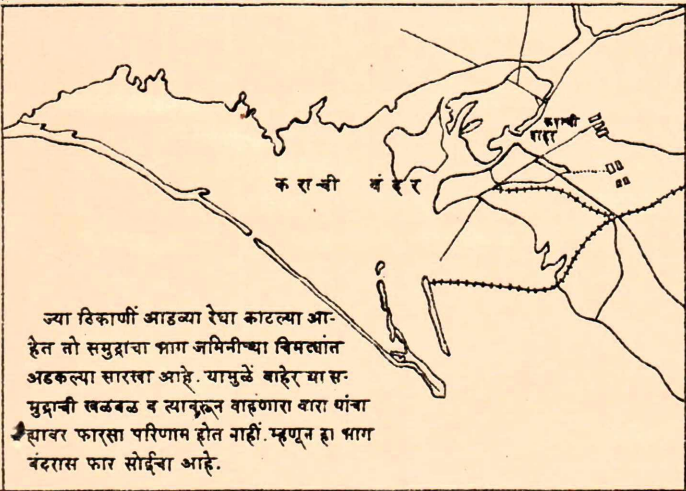 कराची
शहर
कराची बंदर
ज्या ठिकाणीं आडव्या रेघा काटल्या आ-
हेत तो समुद्राचा भाग जमिनीच्या चिमट्यांत
अडकल्या सारखा आहे. यामुळें बाहेर च्या स-
मुद्राची खळबळ व त्यावरून वाहणारा वारा यांचा
ह्यावर फारसा परिणाम होत नाहीं. म्हणून हा भाग
बंदरास फार सोईचा आहे.